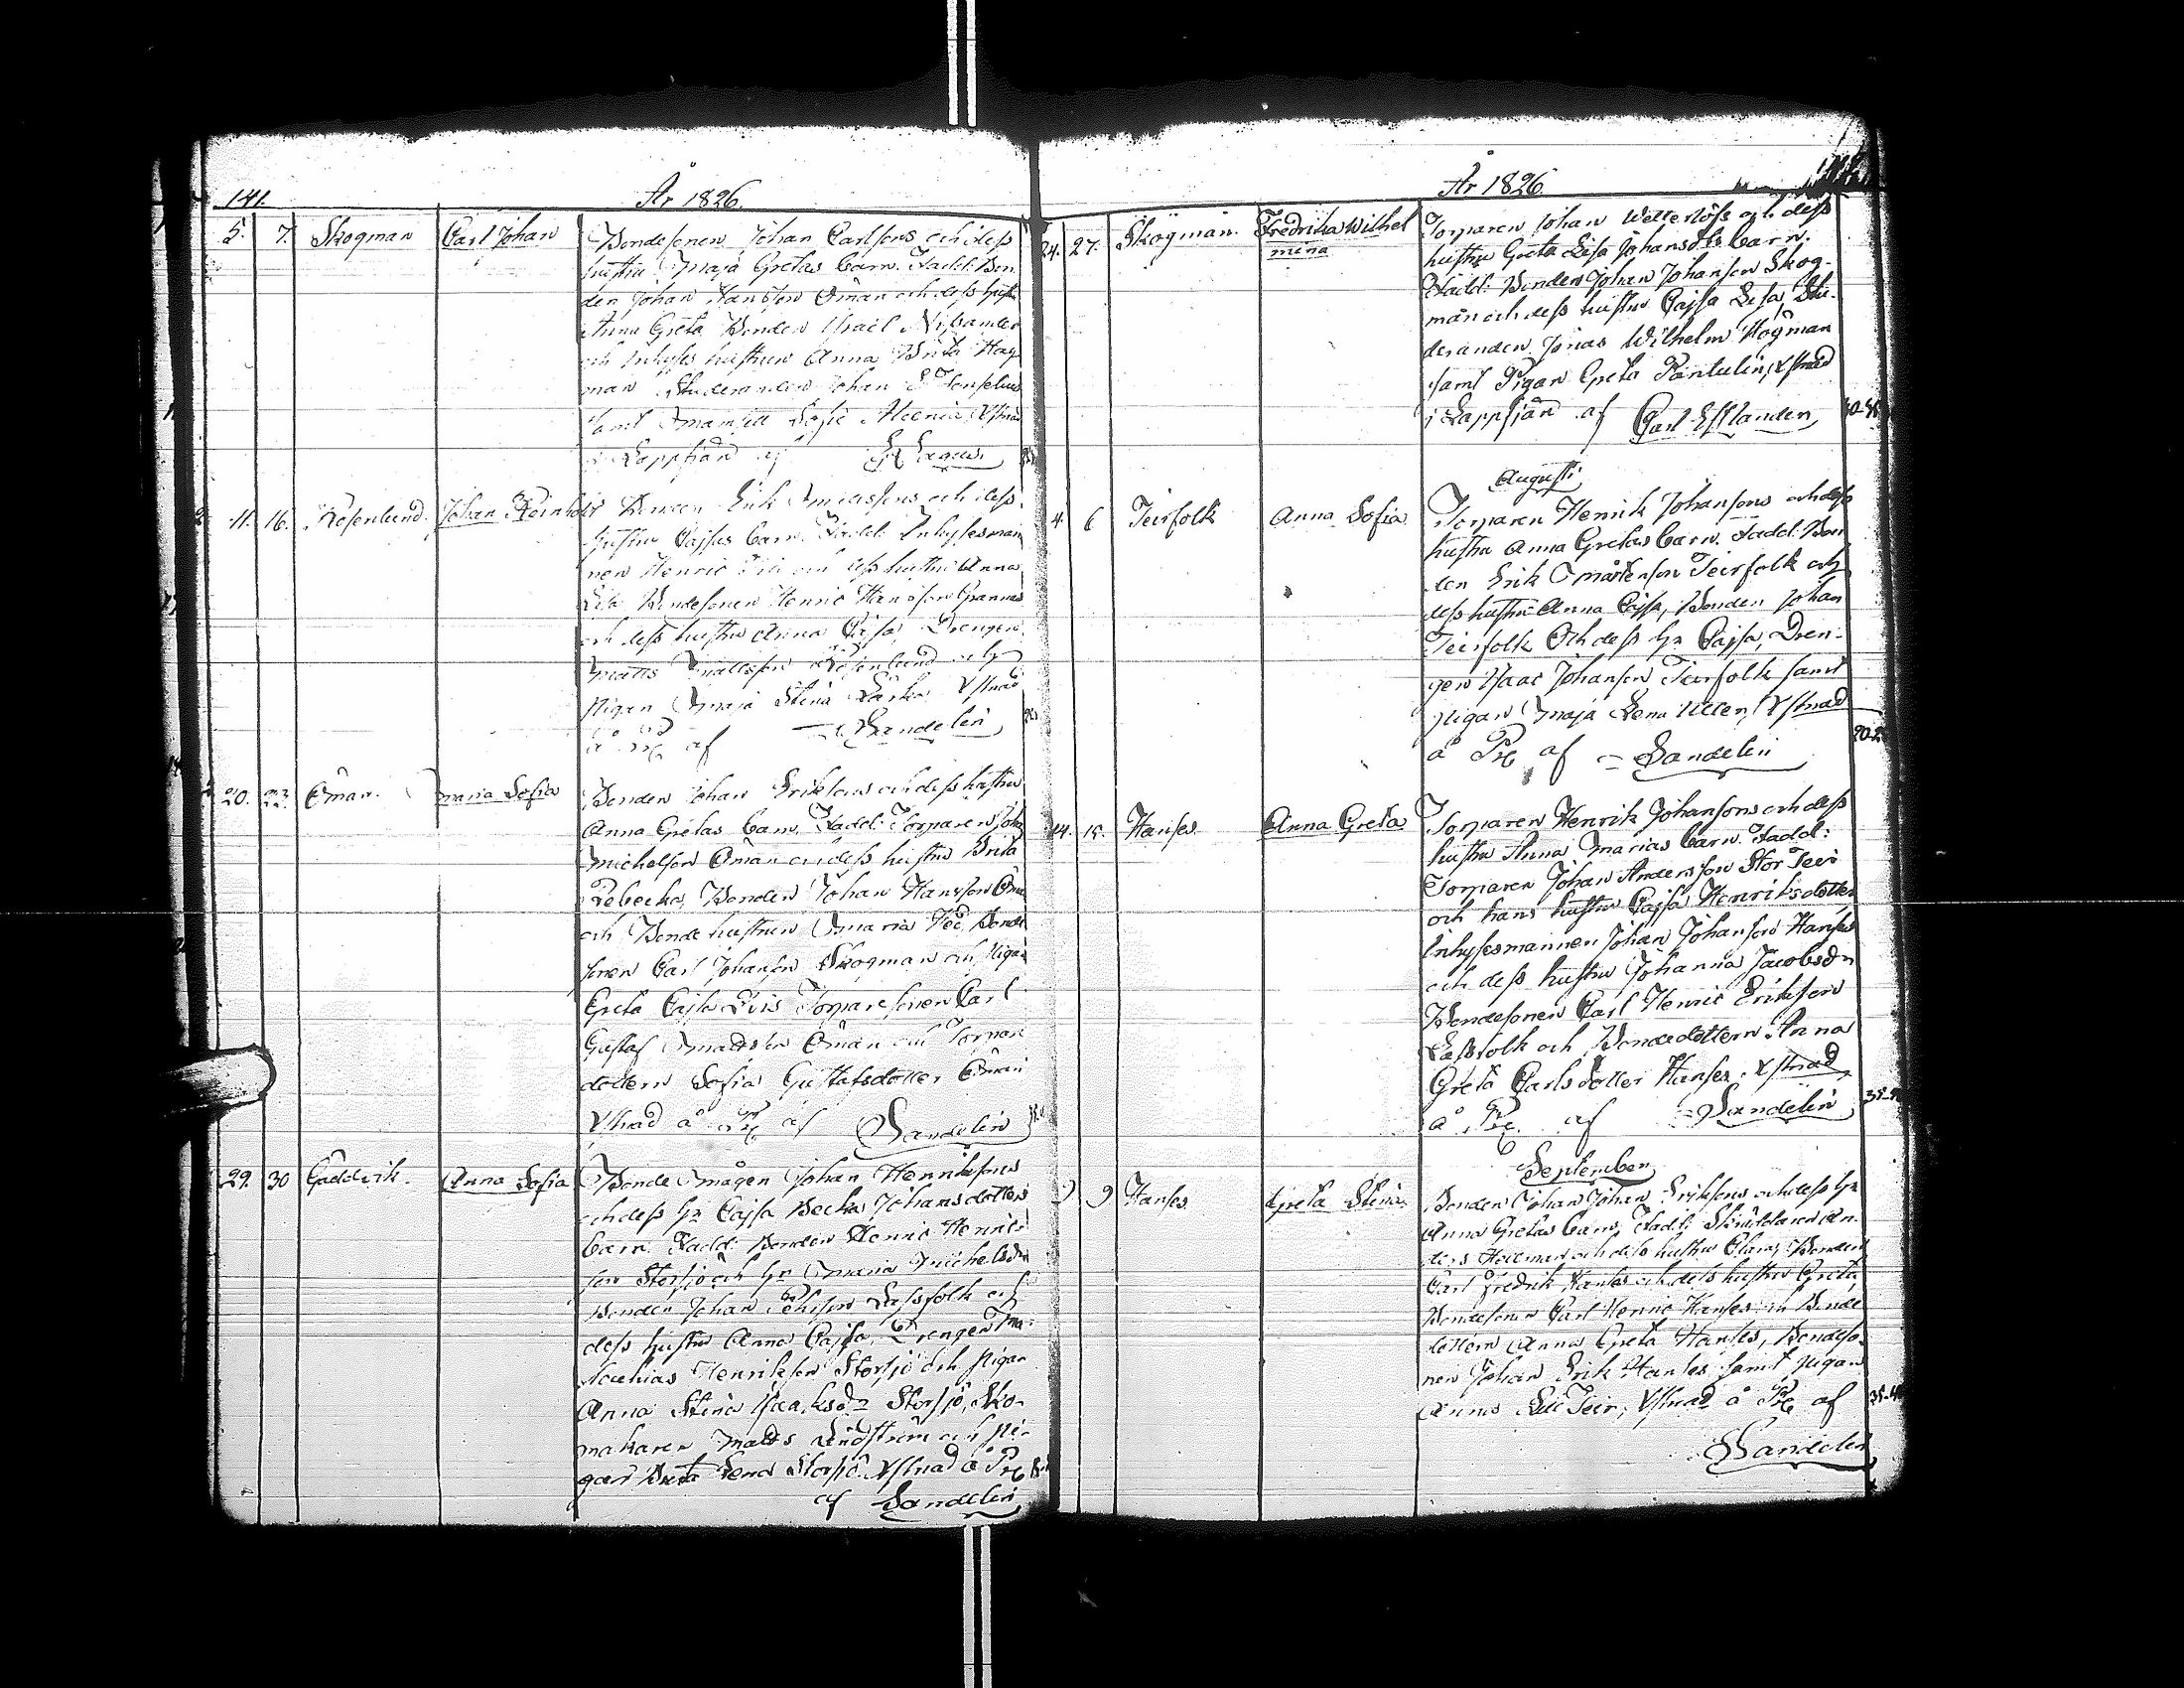 141.
År 1826.
5. 7. Skogman Carl Johan Bondesonen Johan Carlsons och dess
hustru Maja Gretas barn. Fadd: Bon
den Johan Hansson Öman och dess hust
Anna Greta Bonden Israel
och Inhyses hustrun Anna Brita Hag
man Studeranden Johan
samt Mamsell Sofie Xstnad
i Lappfjärd af
11. 16. Rosenlund. Johan Reinhold Erik och dess
hustru Cajsas barn. Fadd: Inhysesman
nen Henric och dess hustru Anna
Lisa Bondesonen Henric Hansson Grannas
och dess hustru Anna Cajsa, Drengen
Matts Mattsson Rosenlund och
pigan Maja Stina Xstnad
å Prg af Sandelin
20. 22. Öman. Maria Sofia Bonden Johan Eriksons och dess hustru
Anna Gretas barn. Fadd: Torparen Joh
Michelson Öman och dess hustru Brita
Rebecka, Bonden Johan Hansson Öman
och Bonde hustrun Maria Bonde
sonen Carl Johanson Skogman och Pigan
Greta Cajsa Torparesonen Carl
Gustaf Mattsson Öman och Torpare
dottern Sofia Gustafsdotter Öman
Xstnad å Prg af Sandelin
29. 30 Gäddvik. Anna Sofia Bonde Mågen Johan Henriksons
och dess hu Cajsa Beckas Johansdotters
barn. Fadd: Bonden Henric Henric
son Storsjö och hu Maria Michelsdr
Bonden Johan Lassfolk och
dess hustru Anna Cajsa, Drengen Ma-
thias Henrikson Storsjö och Pigan
Anna Stina Isaaksdr Storsjö, Sko-
makaren Matts Lindström och Pi-
gan Brita Lena Storsjö. Xstnad å Prg
af Sandelin
År 1826.
24. 27. Skogman. Fredrika Wilhel
mina
Torparen Johan och dess
hustru Greta Lisa Johansdrs barn.
Fadd: Bonden Johan Johanson Skog-
man och dess hustru Cajsa Lisa, Stu-
deranden Jonas Wilhelm Hogman
samt Pigan Greta Xstnad
i Lappfjärd af Carl Estlander
Augusti
4. 6 Teirfolk Anna Sofia Torparen Henrik Johansons och dess
hustru Anna Gretas barn. Fadd: Bon
den Erik Mårtenson Teirfolk och
dess hustru Anna Cajsa, Bonden Johan
Teirfolk Och dess hu Cajsa, Dren-
gen Isaac Johanson Teirfolk samt
pigan Maja Lena Xstnad
å Prg af Sandelin
14. 15. Hanses Anna Greta Torparen Henrik Johansons och dess
hustru Anna Marias barn. Fadd:
Torparen Johan Andersson Stor Teir
och hans hustru Cajsa Henriksdotter
Inhysesmannen Johan Johanson Hanses
och dess hustru Johanna Jacobsdr
Bondesonen Carl Henric Erikson
Lassfolk och Bondedottern Anna
Greta Carlsdotter Hanses. Xstnad
å Prg. af Sandelin
September
9 Hanses Greta Stina. Bonden Johan Johan Eriksons och dess hu
Anna Gretas barn, Fadd: Skräddaren An-
ders och dess hustru Clara, Bonden
Carl Fredrik Hanses och dess hustru Greta,
Bondesonen Carl Henric Hanses och Bonde
dottern Anna Greta Hanses, Bondeso-
nen Johan Erik Hanses samt pigan
Anna Teir, Xstnad å Prg af
Sandelin